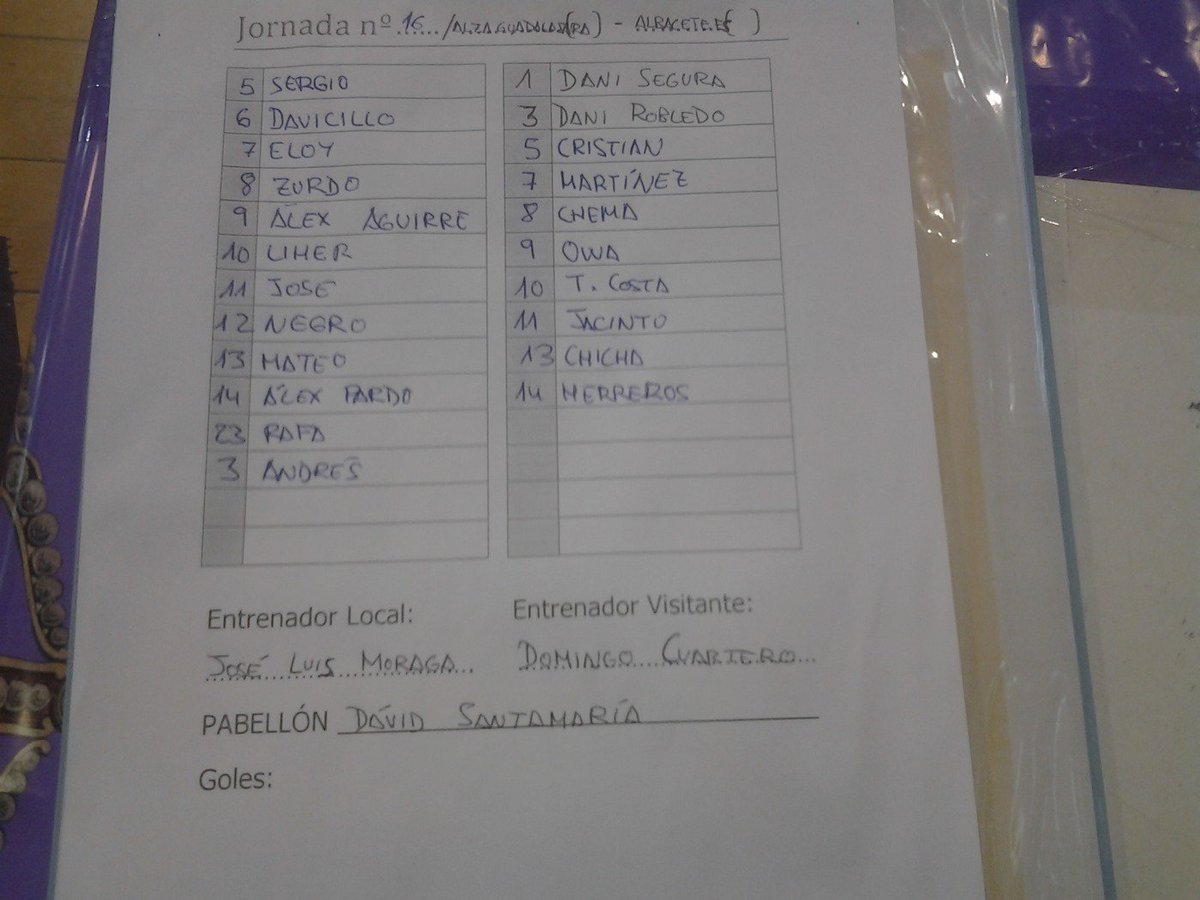 Jornada nº 16 /
5 SERGIO
6 DAVICILLO
7 ELOY
8 ZURDO
9 ÁLEX AGUIRRE
10 LIHER
11 JOSÉ
12 NEGRO
13 MATEO
14 ÁLEX PARDO
23 RAFA
3 ANDRÉS
1 DANI SEGURA
3 DANI ROBLEDO
5 CRISTIAN
7 MARTÍNEZ
8 CHEMA
9 OWA
10 T. COSTA
11 JACINTO
13 CHICHA
14 HERREROS
Entrenador Local:
JOSÉ LUIS MORAGA
Entrenador Visitante:
DOMINGO CUARTERO
PABELLÓN DAVID SANTAMARÍA
Goles: